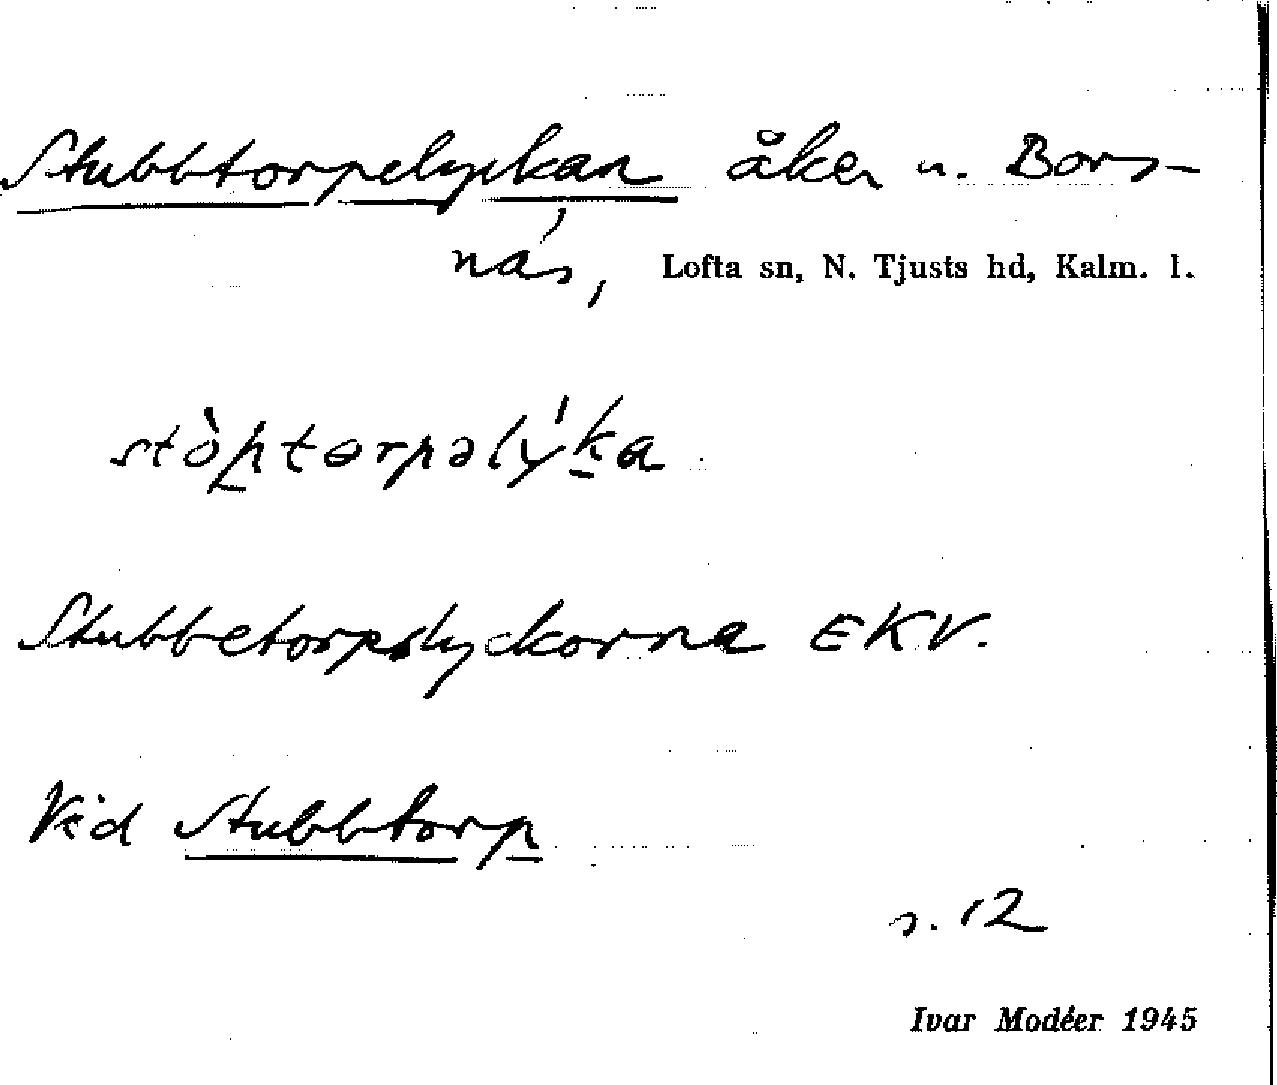 Stubbtorpelyckan åker u. Bors-
näs, Lofta sn, N. Tjusts hd, Kalm. l.
stòptorpəlýka
Stubbetorpslyckorna EKV.
Vid Stubbtorp
s. 12
Ivar Modéer 1945